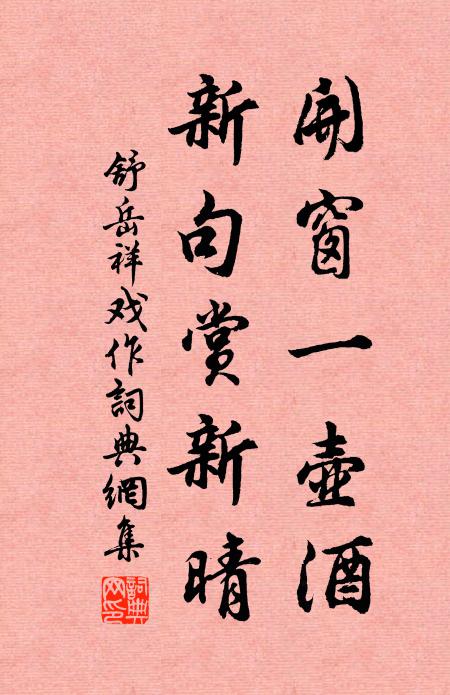 開窗一壺酒
新句賞新晴
舒岳祥戏作詞典網集
詞典网印